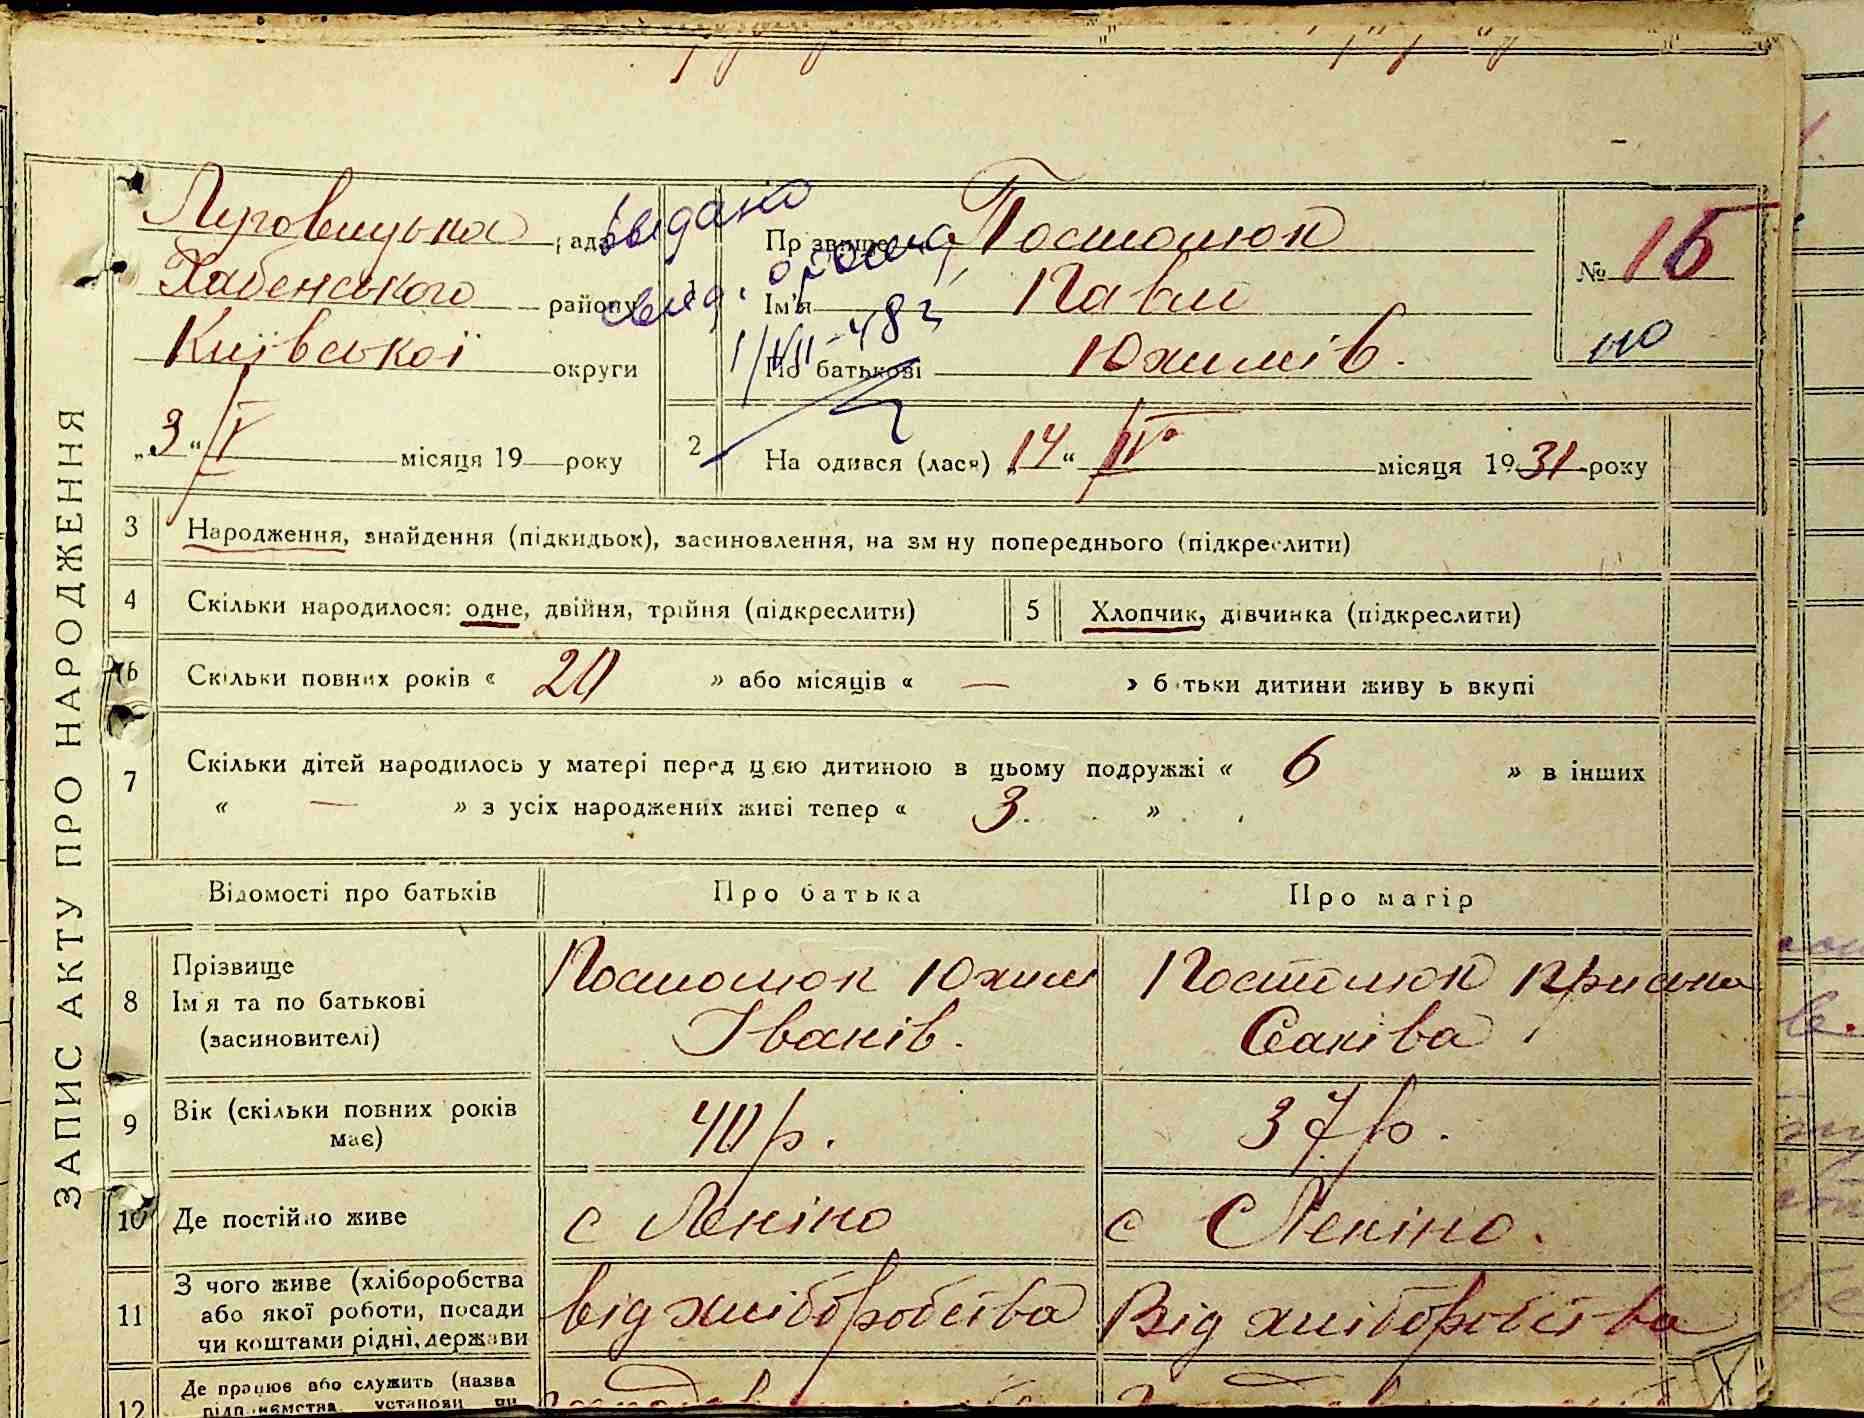 ЗАПИС АКТУ ПРО НАРОДЖЕННЯ
Луговицька рада
Хабенського району
Київської округи
„3“ V місяця 19 року
видано
1/VII-48 г
1 Прізвище Постолюк
Ім'я Павло
По батькові Юхимів.
№ 15
2 Народився (лася) „14“ IV місяця 1931 року
3 Народження, знайдення (підкидьок), засиновлення, на зміну попереднього (підкреслити)
4 Скільки народилося: одне, двійня, трійня (підкреслити)
5 Хлопчик, дівчинка (підкреслити)
6 Скільки повних років « 20 » або місяців « — » батьки дитини живуть вкупі
7 Скільки дітей народилось у матері перед цією дитиною в цьому подружжі « 6 » в інших
« — » з усіх народжених живі тепер « 3 »
Відомості про батьків Про батька Про матір
8 Прізвище Ім'я та по батькові (засиновителі)
Постолюк Юхим Іванів.
Постолюк Пріська
9 Вік (скільки повних років має) 40 р. 37 р.
10 Де постійно живе с Леніно с Леніно.
11 З чого живе (хліборобства або якої роботи, посади чи коштами рідні, держави
від хліборобства Від хліборобства
12 Де працює або служить (назва
підприємства, установи чи